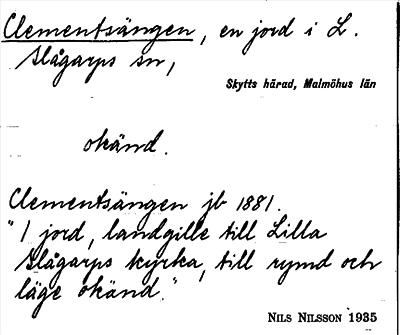 Clementsängen, en jord i L.
Slågarps sn,
Skytts härad, Malmöhus län
okänd.
Clementsängen jb 1881.
"1 jord, landgille till Lilla
Slågarps kyrka, till rymd och
läge okänd."
NILS NILSSON 1935